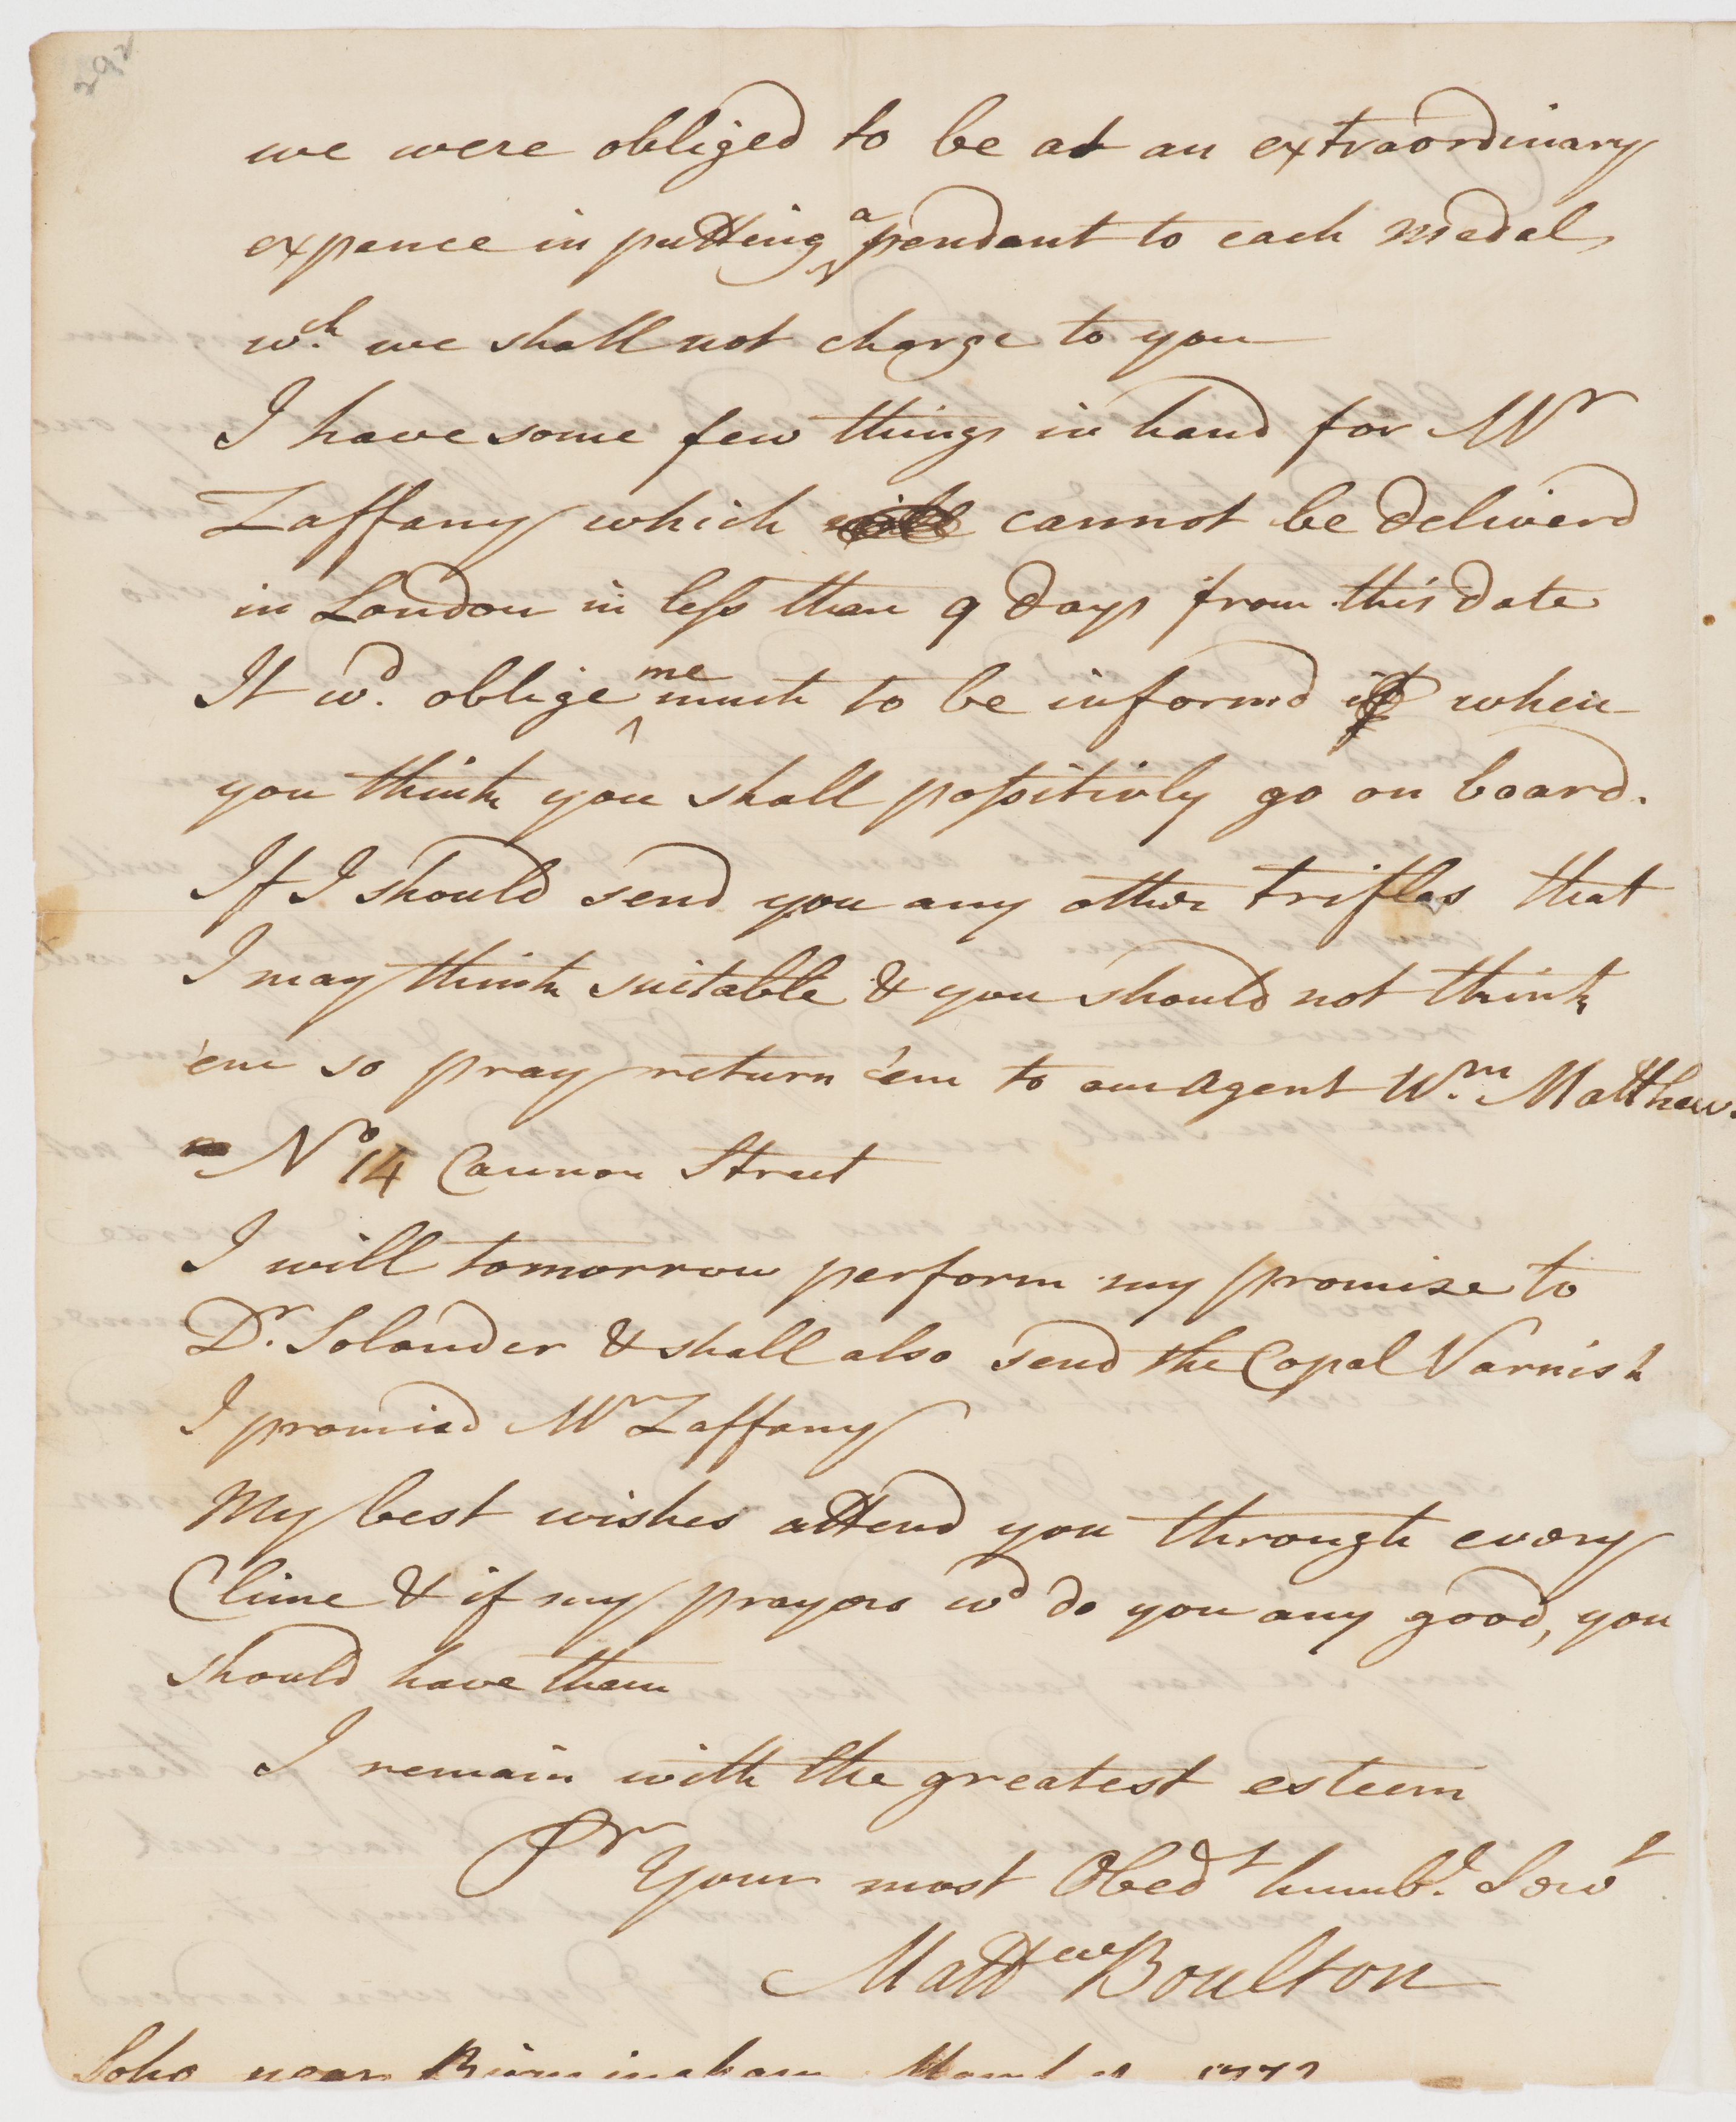 292
we were obliged to be at an extraordinary
expence in putting a pendant to each medal,
wch. we shall not charge to you
I have some few things in hand for Mr
Zaffany which will cannot be deliverd
in London in less than 9 days from this date
It wd. oblige me much to be informd if when
you think you shall possitivly go on board.
If I should send you any other trifles that
I may think suitable & you should not think
'em so pray return 'em to our Agent Wm. Matthews
No 14 Cannon Street
I will tomorrow perform my promise to
Dr. Solander & shall also send the Copal Varnish
I promisd Mr Zaffany
My best wishes attend you through every
Clime & if my prayers wd do you any good, you
should have them
I remain with the greatest esteem
Sr Your most Obedt humbl. Servt
Mattw Boulton
Soho near Birmingham March 1772